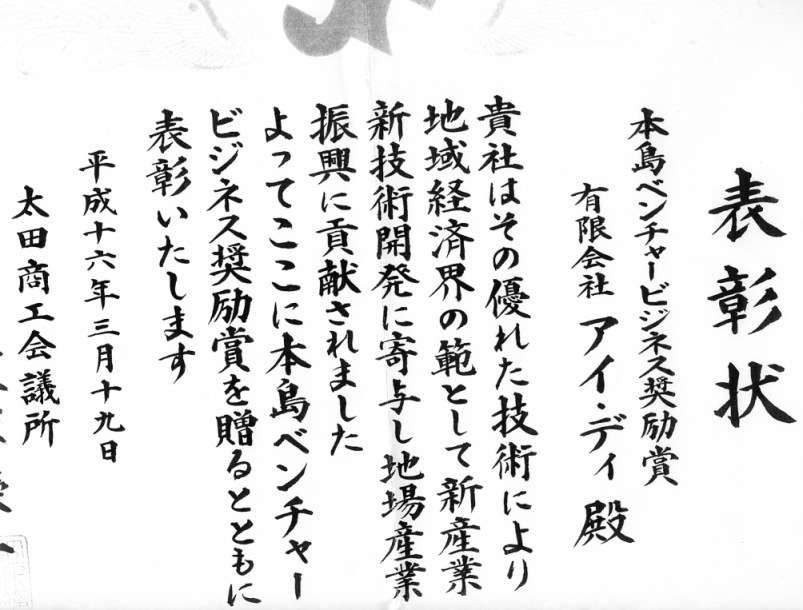 表彰状
本島ベンチャービジネス奨励賞
有限会社 アイ・ディ 殿
貴社はその優れた技術により
地域経済界の範として新産業
新技術開発に寄与し地場産業
振興に貢献されました
よってここに本島ベンチャー
ビジネス奨励賞を贈るとともに
表彰いたします
平成十六年三月十九日
太田商工会議所